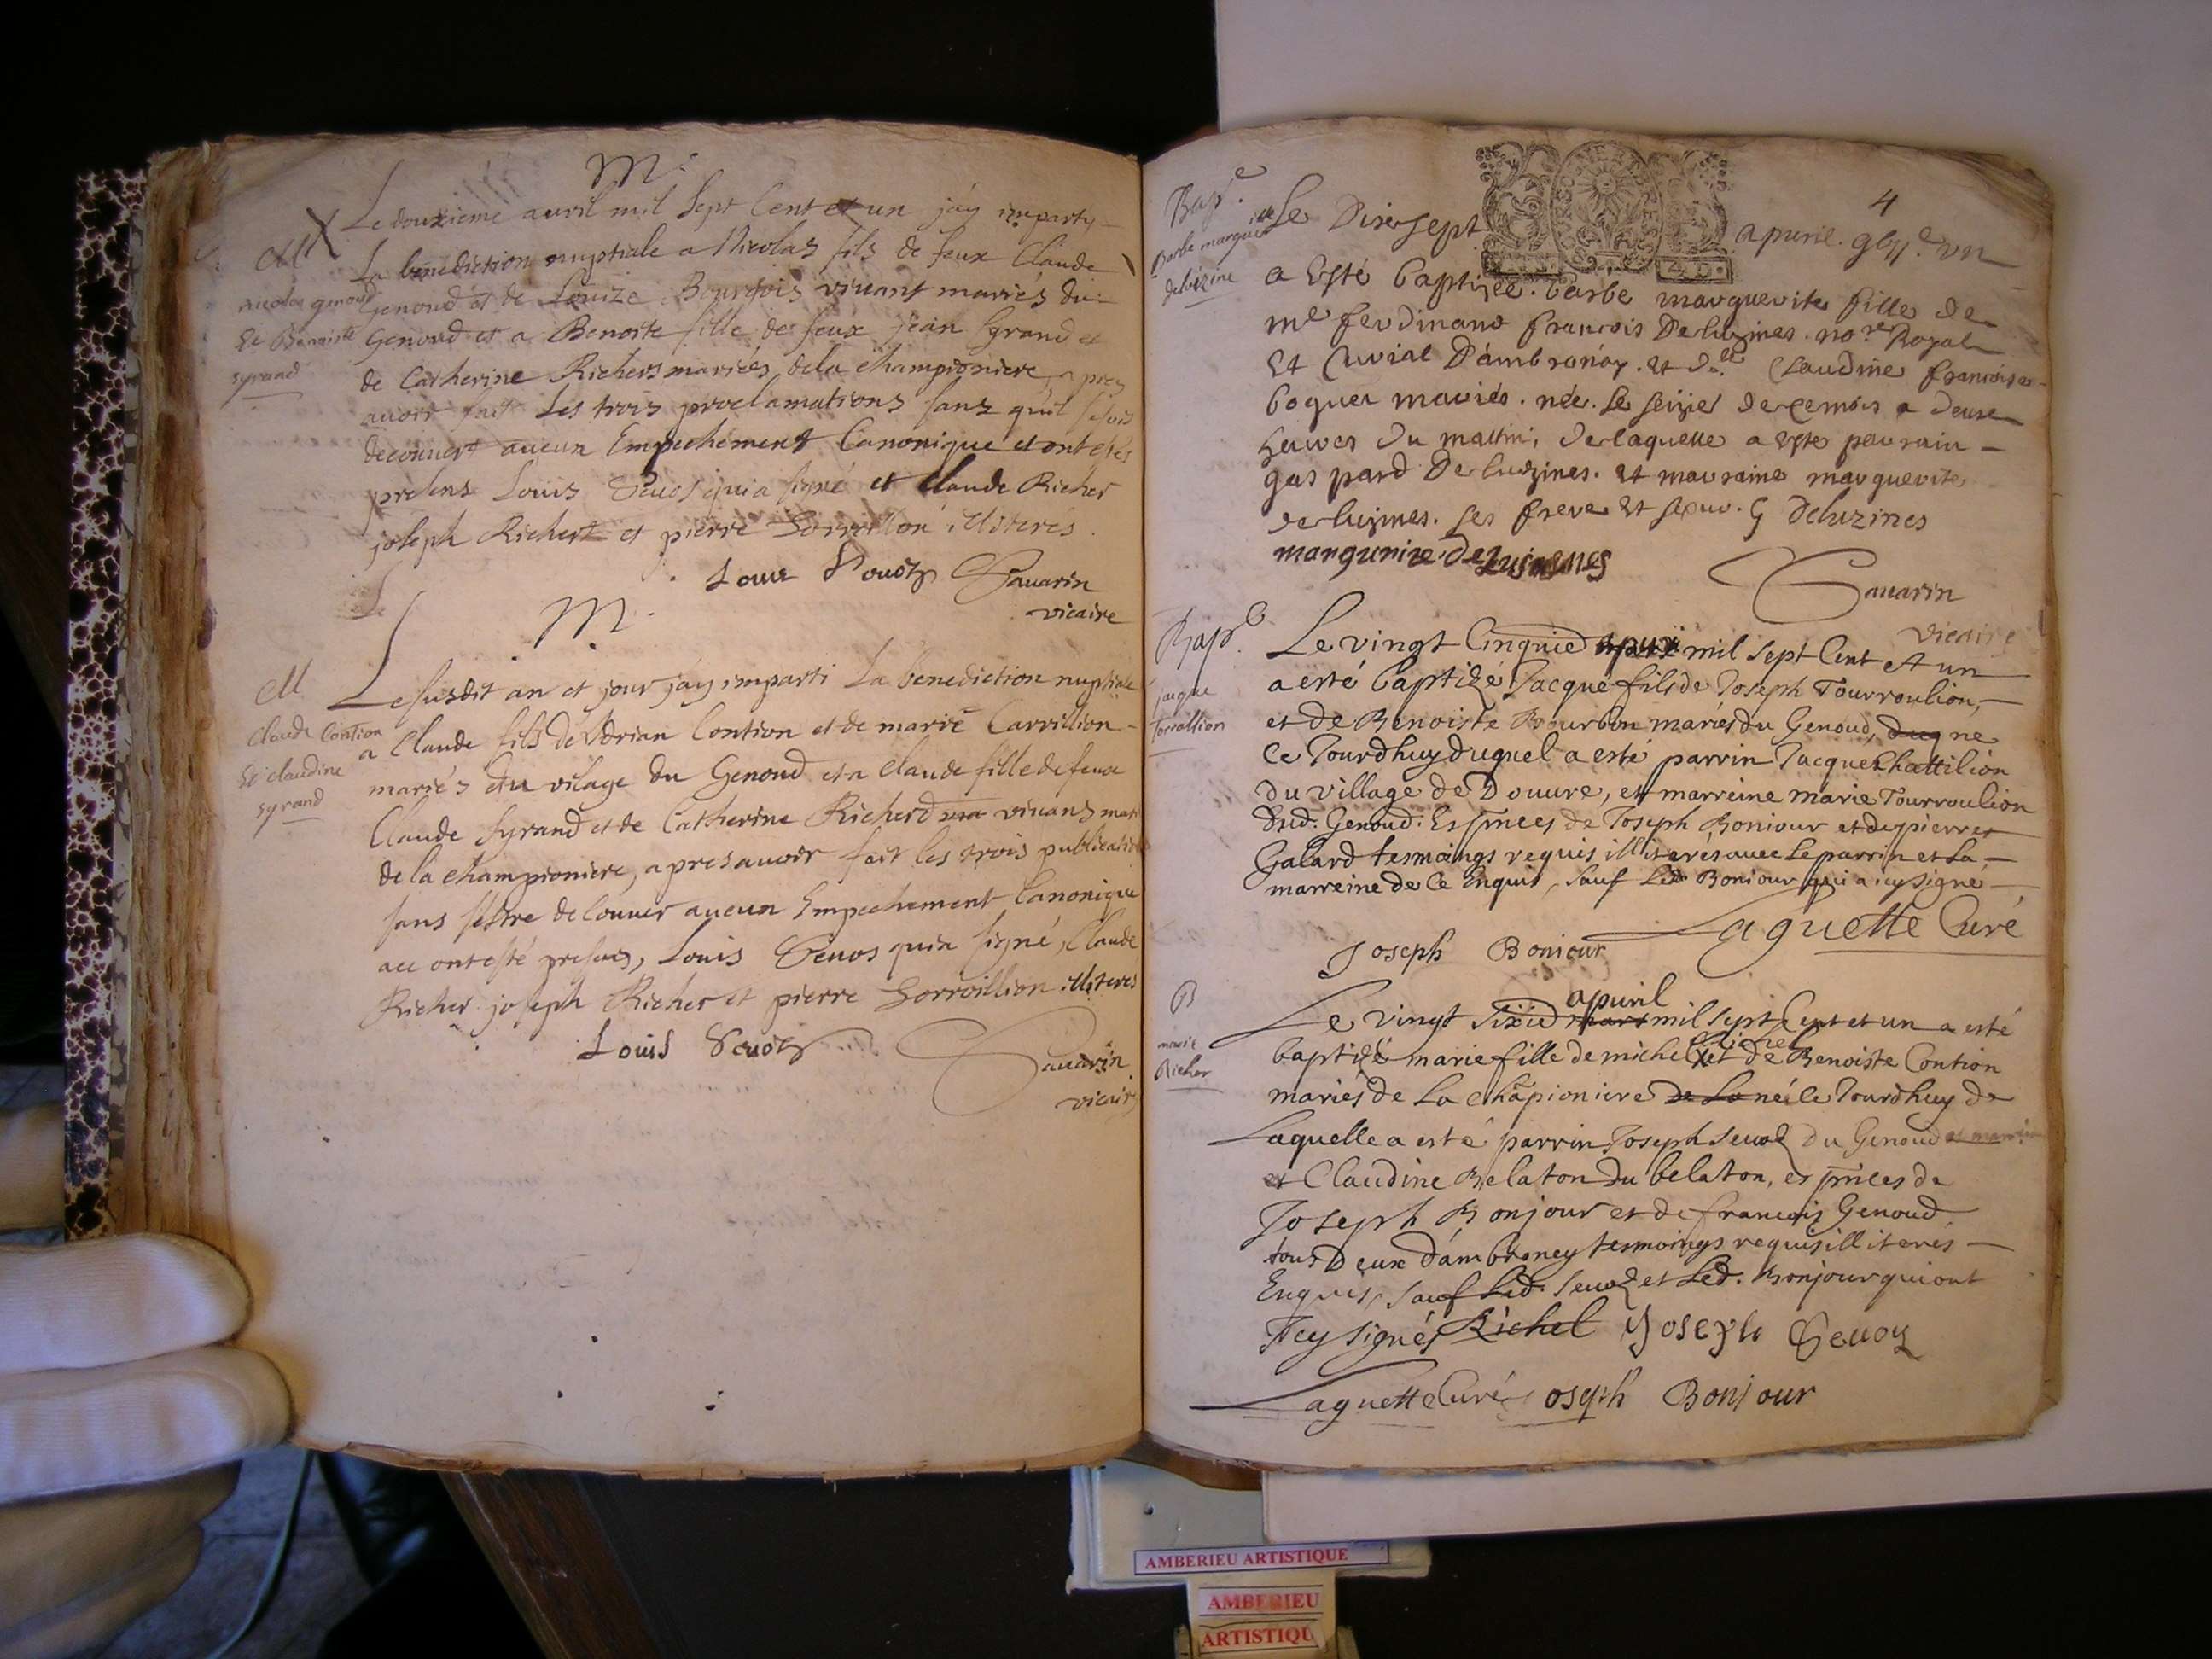 M.
Le douzieme auril mil sept Cent et un j'ay imparty
La benediction nuptiale a Nicolas fils de feux Claude
Genoud et de Louize Bourgois viuant mariés du
Genoud et a Benoite fille de feux jean Syrand et
de Catherine Richers mariés de la championiere, apres
auoir fait Les trois proclamations sans qu'il se soit
decouuert aucun Empechement Canonique et ont estes
presens Louis Seuos qui a signé et Claude Richer
joseph Richert et pierre illiterés.
M
nicolas genoud
et Benoiste
syrand
Louis Seuoz Sauarin
vicaire
M.
Le susdit an et jour j'ay imparti La benediction nuptiale
a Claude fils de Adrian Contion et de marie Carvillion
mariés du vilage du Genoud et a Claude fille de feux
Claude Syrand et de Catherine Richerd viuans mariés
de la championiere, apres auoir fait les trois publications
sans s'estre decouuer aucun Empechement Canonique
ont esté presens, Louis Seuos qui a signé, Claude
Richer joseph Richer et pierre illiteres
M
claude Contion
et claudine
syrand
Louis Seuoz
Sauarin
vicaire
4
Bap.e
Barbe marguerite
deluzine
Le Dixe sept apuril. un
a Esté baptizée. barbe marguerite fille de
me ferdinand francois Deluzines. nore Royal
et Curial D'ambronay. et d.lle Claudine francoise
boquer mariés. née. le seizie de ce mois a deux
heures du mattin, de laquelle a este parrain
gaspard Deluzines. et marraine marguerite
deluzines. ses frere et seur. G Deluzines
Sauarin
vicaire
Bap.
jacque
torrollion
Le vingt Cinquie apuril mil sept Cent et un
a esté baptizé Jacque fils de Joseph Tourroulion,
et de Benoiste Bourbon mariés du Genoud, ne
Ce Jourdhuy duquel a esté parrin Jacque Chattilion
du village de Douure, et marreine marie Tourroulion
dud. Genoud. Es pnces de Joseph Bonjour et de pierre
Galard tesmoings requis illiterés auec Le parrin et La
marreine de Ce Enquis, sauf Led. Bonjour qui a icy signé
Laguette Curé
Joseph Bonjour
B
marie
Richer
apuril
Le vingt sixie mars mil sept Cent et un a esté
Richel
baptizé marie fille de michel et de Benoiste Contion
mariés de La chãpioniere de La née le Jourdhuy de
Laquelle a esté parrin Joseph Seuoz du Genoud
et Claudine Belaton du belaton, es pnces de
Joseph Bonjour et de francois Genoud
tous Deux d'ambroney tesmoings requis illiterés
Enquis, sauf Led. Seuoz et Led. Bonjour qui ont
Icy signés Richel Joseph Seuoz
Laguette Curé Joseph Bonjour
AMBERIEU ARTISTIQUE
AMBERIEU
ARTISTIQU